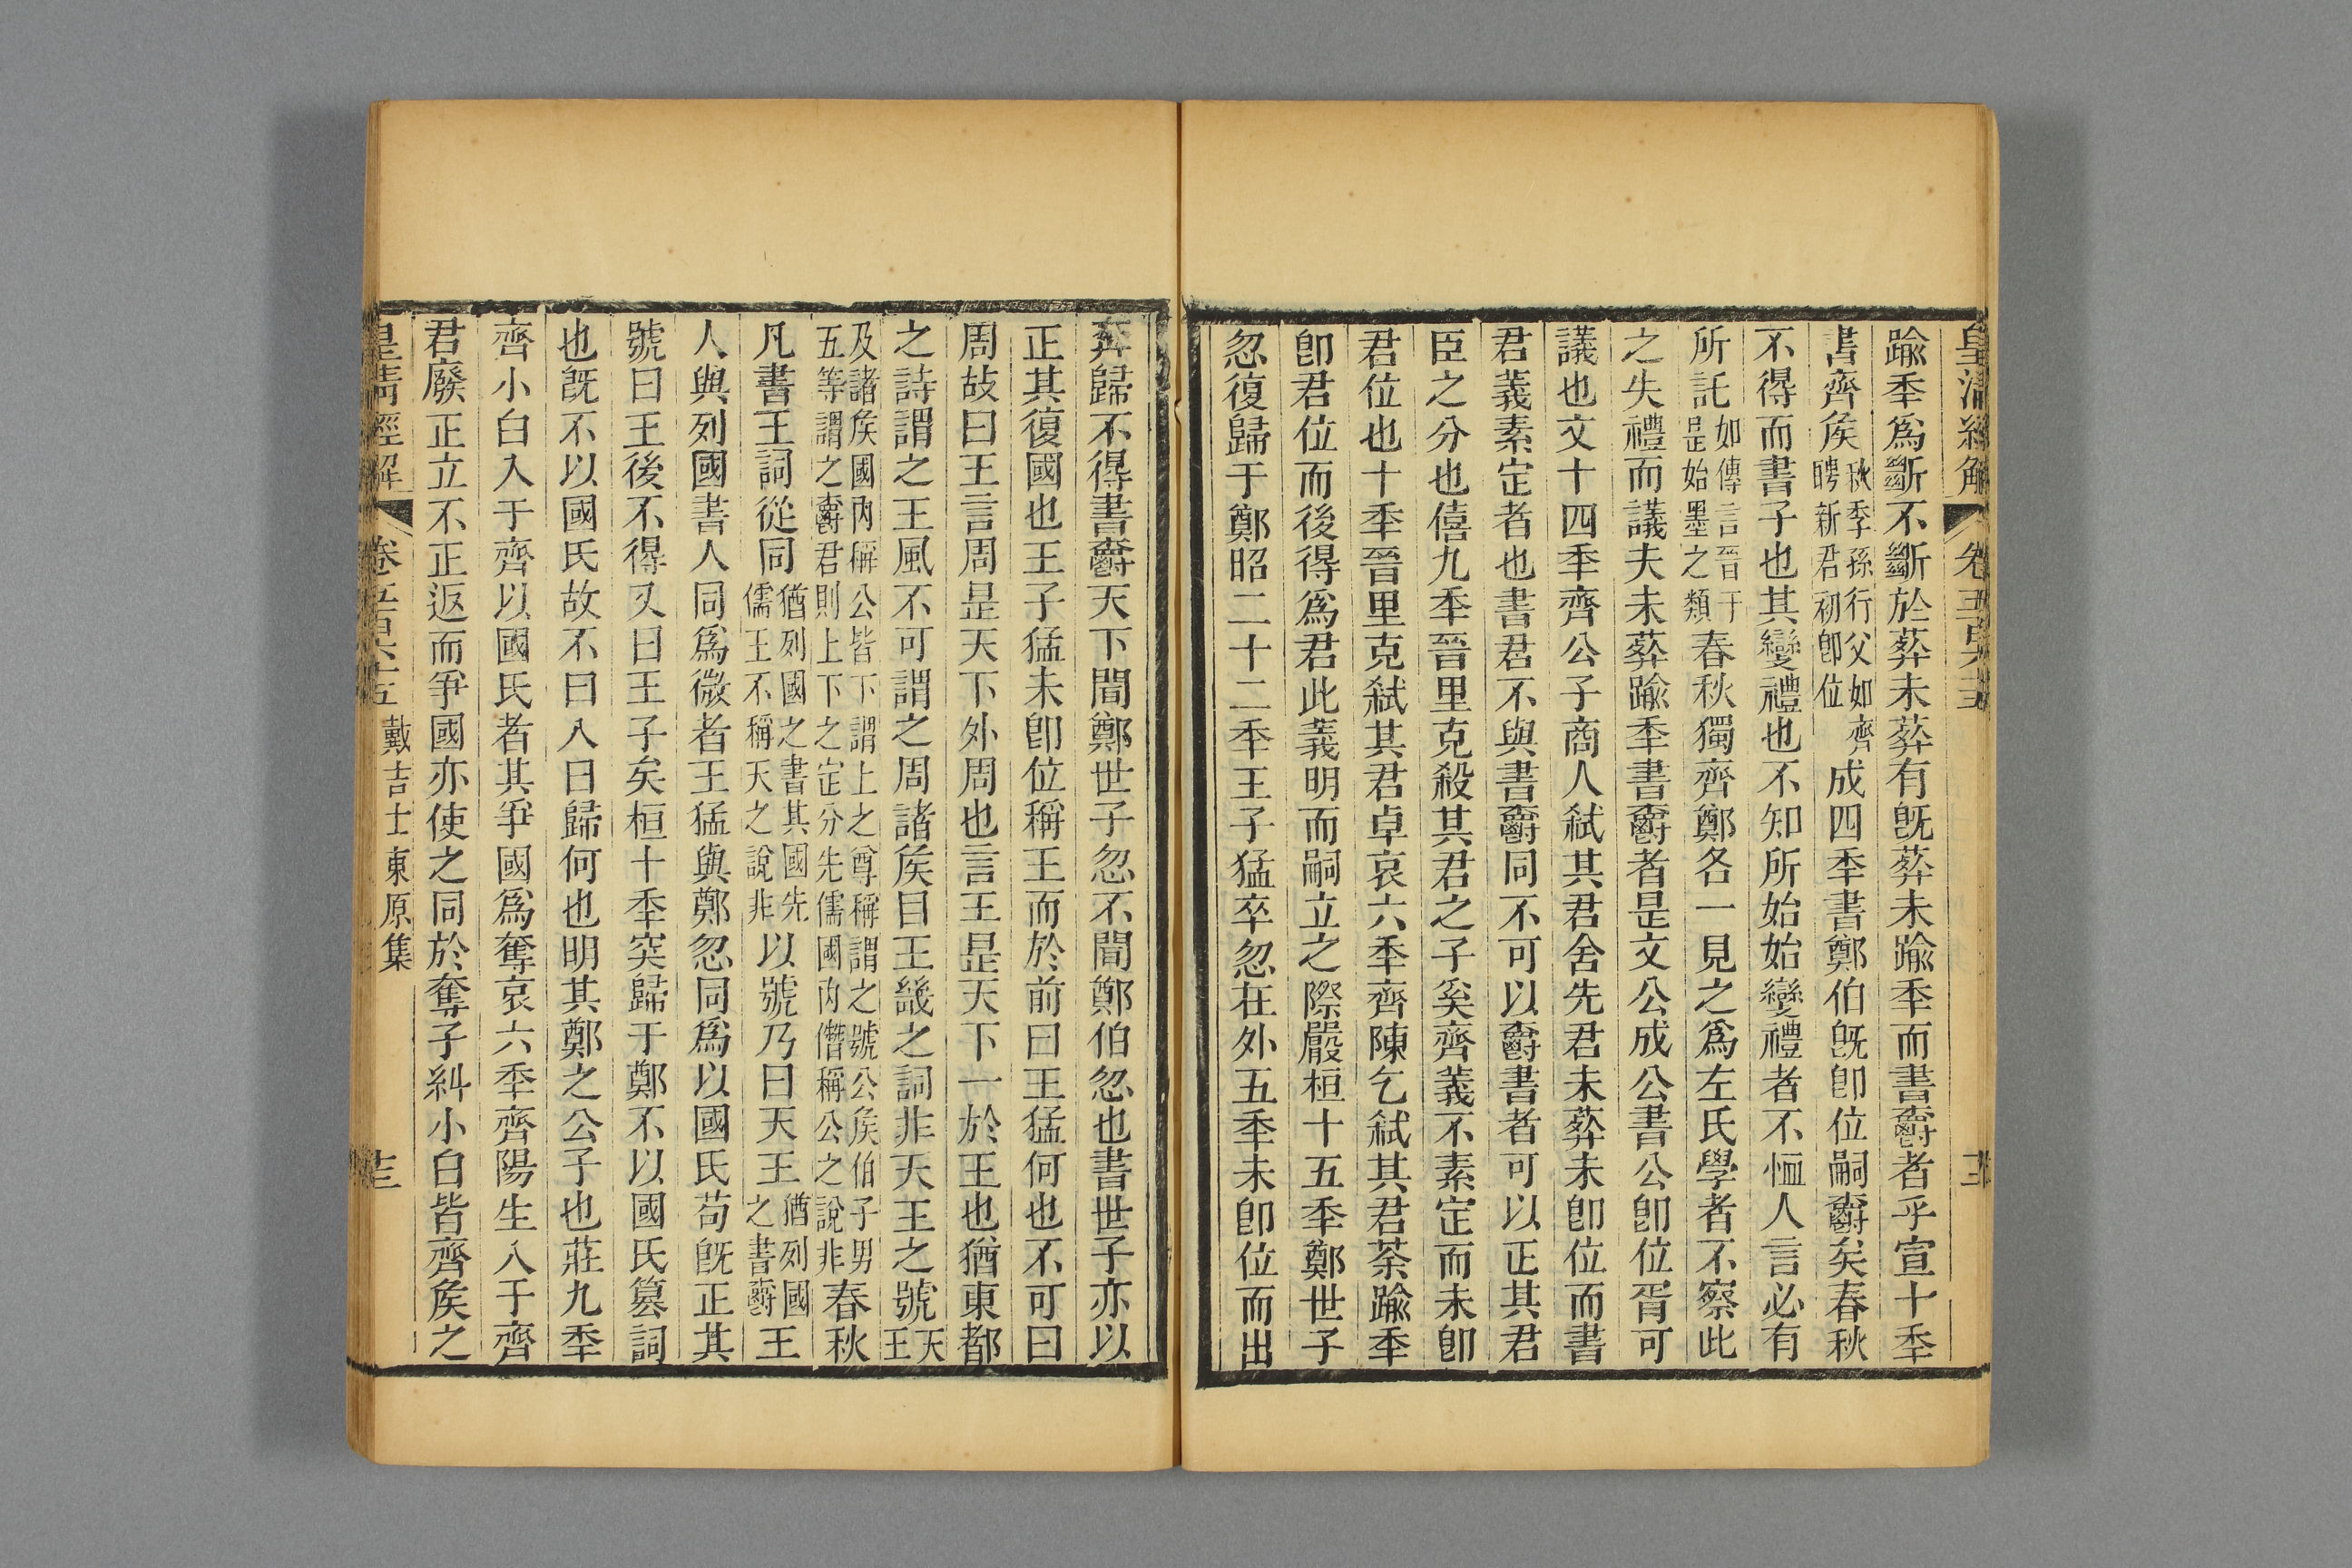 皇清經解 卷五百六十五 十三
踰秊爲斷不斷於葬未葬有旣葬未踰秊而書爵者乎宣十秊
書齊矦秋季孫行父如齊聘新君初卽位成四秊書鄭伯旣卽位嗣爵矣春秋
不得而書子也其變禮也不知所始始變禮者不恤人言必有
所託如傳言晉于是始墨之類春秋獨齊鄭各一見之爲左氏學者不察此
之失禮而議夫未葬踰秊書爵者是文公成公書公卽位胥可
議也文十四秊齊公子商人弒其君舍先君未葬未卽位而書
君義素定者也書君不與書爵同不可以爵書者可以正其君
臣之分也僖九秊晉里克殺其君之子奚齊義不素定而未卽
君位也十秊晉里克弒其君卓哀六秊齊陳乞弒其君荼踰秊
卽君位而後得爲君此義明而嗣立之際嚴桓十五秊鄭世子
忽復歸于鄭昭二十二秊王子猛卒忽在外五秊未卽位而出
奔歸不得書爵天下聞鄭世子忽不聞鄭伯忽也書世子亦以
正其復國也王子猛未卽位稱王而於前曰王猛何也不可曰
周故曰王言周是天下外周也言王是天下一於王也猶東都
之詩謂之王風不可謂之周諸矦目王畿之詞非天王之號天王
及諸矦國內稱公皆下謂上之尊稱謂之號公矦伯子男五等謂之爵君則上下之定分先儒國內僭稱公之說非春秋
凡書王詞從同猶列國之書其國先儒王不稱天之說非以號乃曰天王猶列國之書爵王
人與列國書人同爲微者王猛與鄭忽同爲以國氏苟旣正其
號曰王後不得又曰王子矣桓十秊突歸于鄭不以國氏篡詞
也旣不以國氏故不曰入曰歸何也明其鄭之公子也莊九秊
齊小白入于齊以國氏者其爭國爲奪哀六秊齊陽生入于齊
君廢正立不正返而爭國亦使之同於奪子糾小白皆齊矦之
皇清經解 卷五百六十五 戴吉士東原集 十三